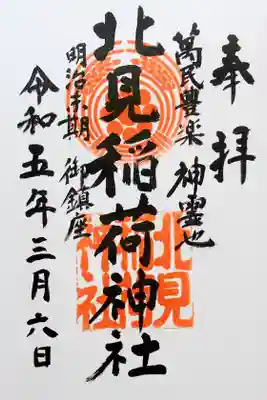 奉拝
萬民豊楽 神霊也
北見稲荷神社
明治末期 御鎮座
令和五年三月六日
北見
神社